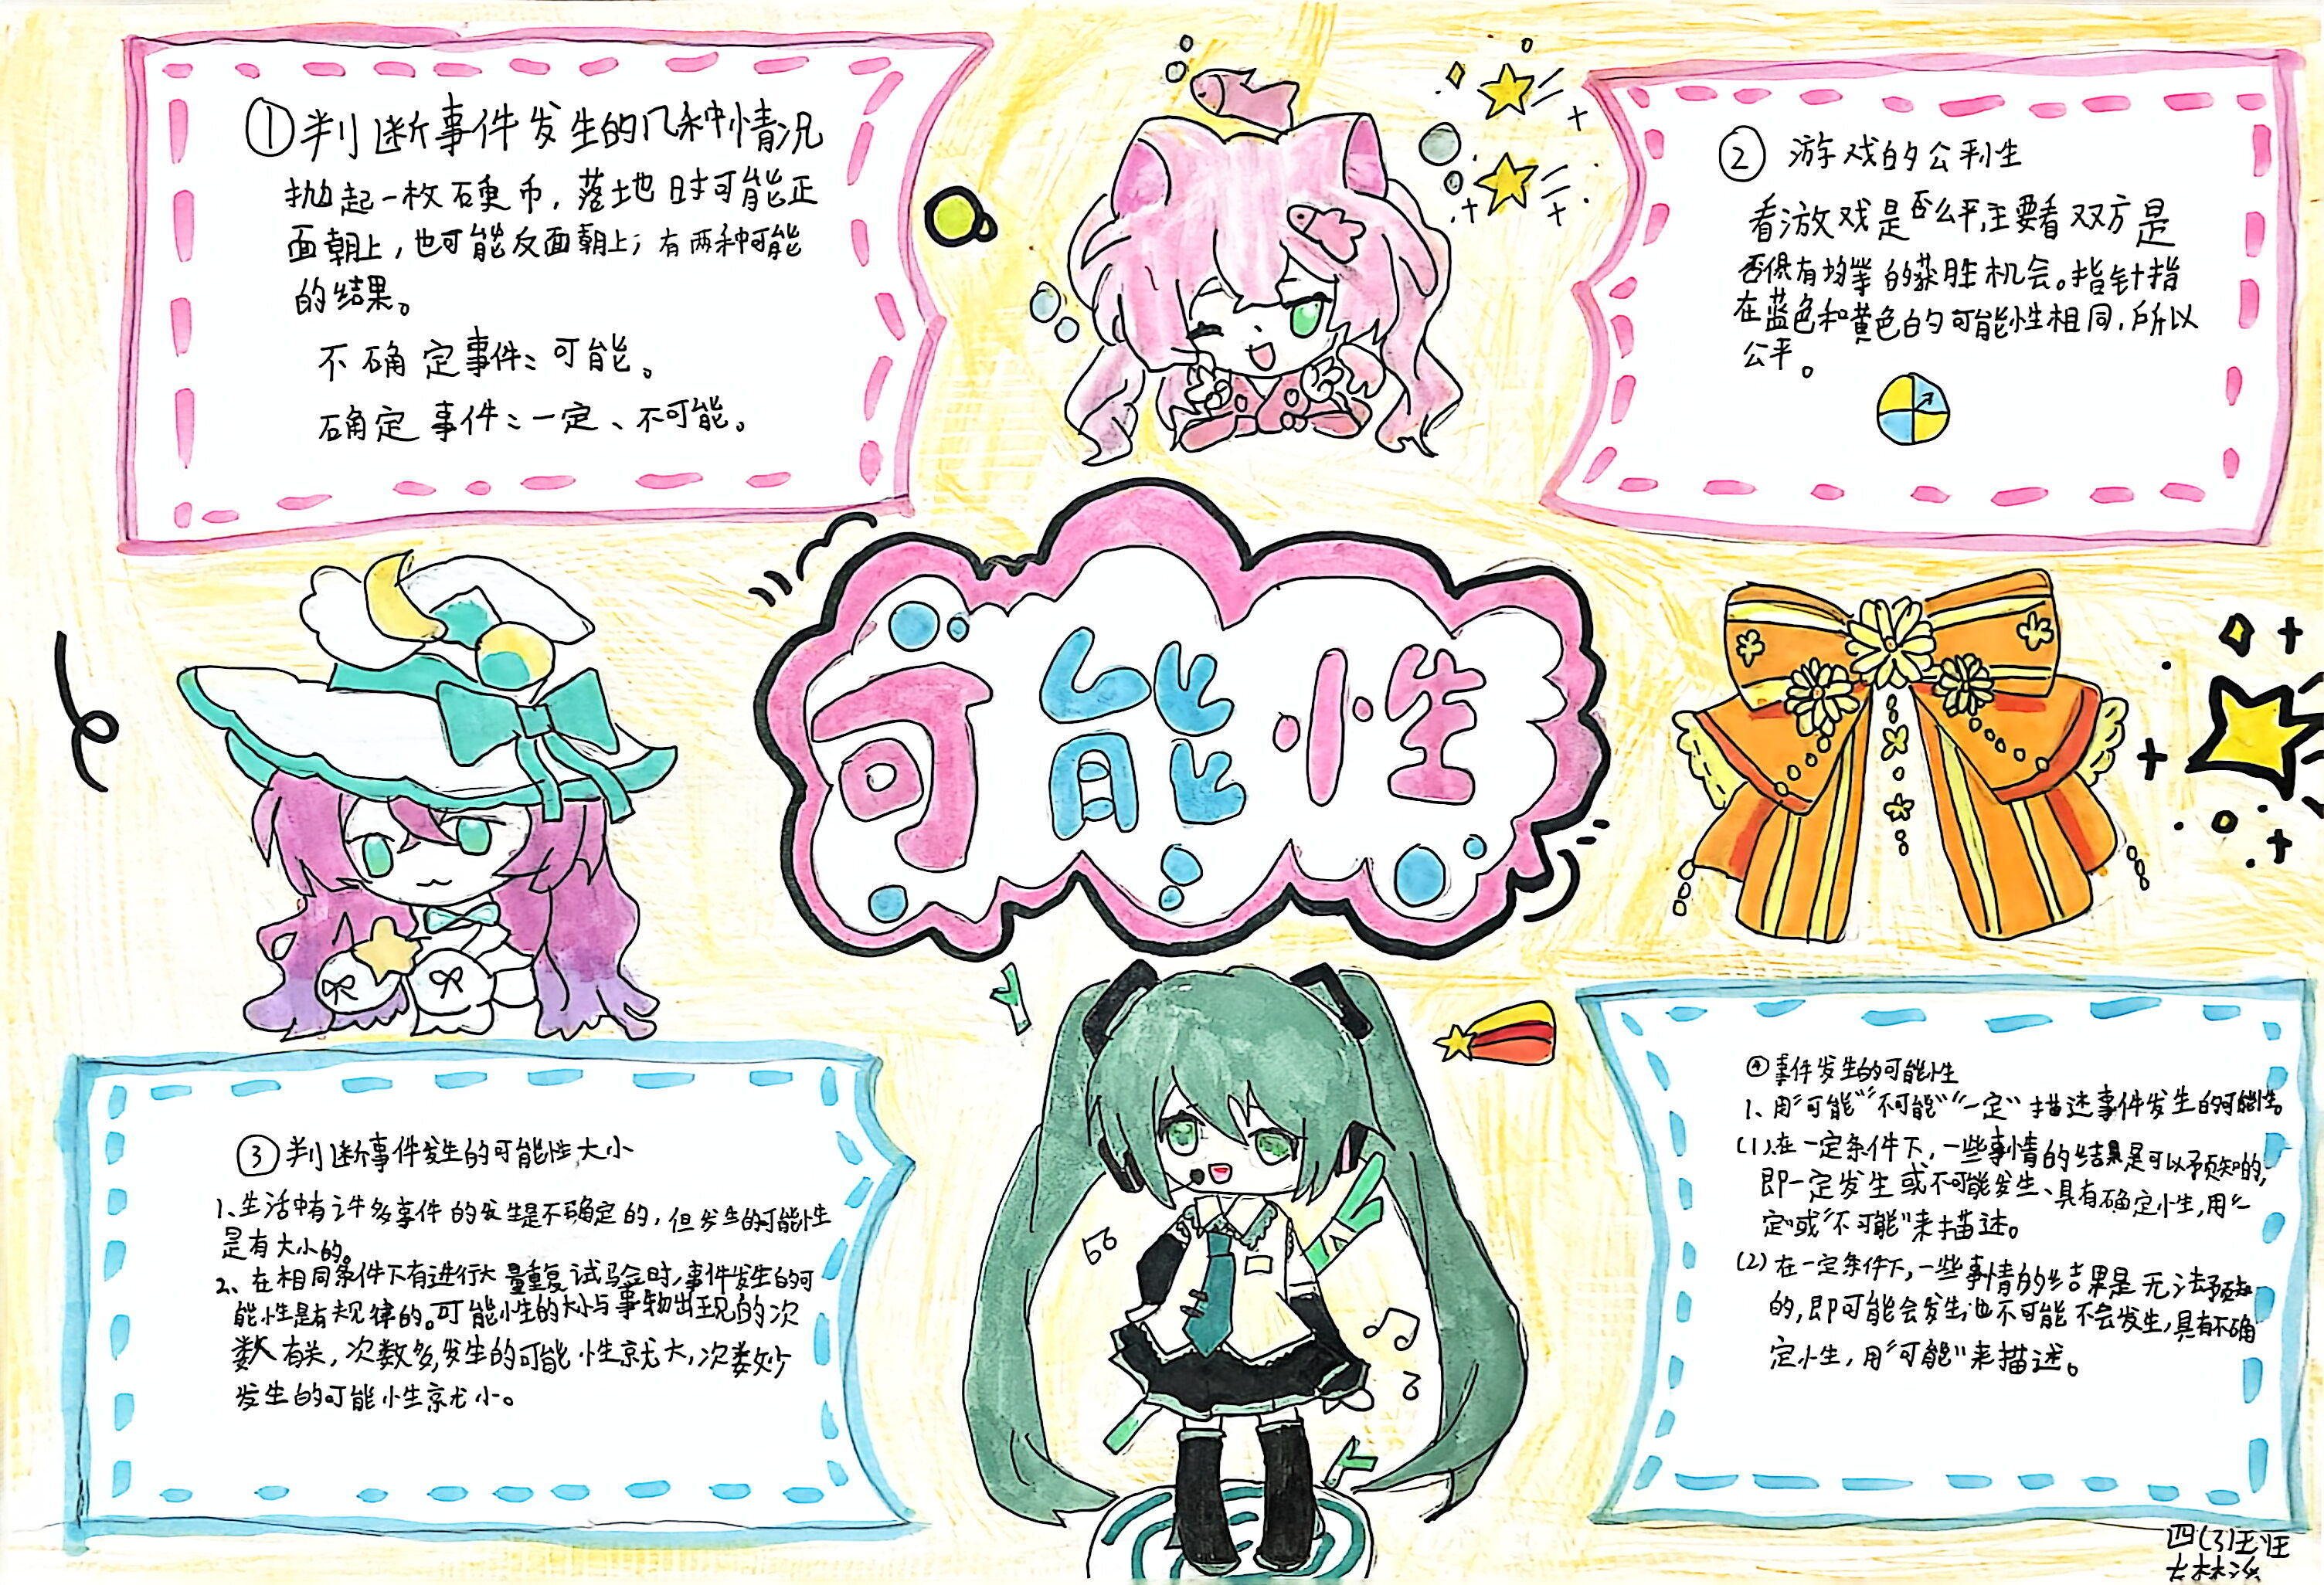 ①判断事件发生的几种情况
抛起一枚硬币，落地时可能正
面朝上，也可能反面朝上；有两种可能
的结果。
不确定事件：可能。
确定事件：一定、不可能。
②游戏的公平性
看游戏是否公平，主要看双方是
否具有均等的获胜机会。指针指
在蓝色和黄色的可能性相同，所以
公平。
可能性
③判断事件发生的可能性大小
1、生活中有许多事件的发生是不确定的，但发生的可能性
是有大小的。
2、在相同条件下有进行大量重复试验时，事件发生的可
能性是有规律的。可能性的大小与事物出现的次
数有关，次数多，发生的可能性就大，次数少
发生的可能性就小。
④事件发生的可能性
1、用“可能”“不可能”“一定”描述事件发生的可能性。
(1)、在一定条件下，一些事情的结果是可以予预知的，
即一定发生或不可能发生、具有确定性，用“一
定”或“不可能”来描述。
(2)在一定条件下，一些事情的结果是无法予预知
的，即可能会发生，也不可能不会发生，具有不确
定性，用“可能”来描述。
四(3)班